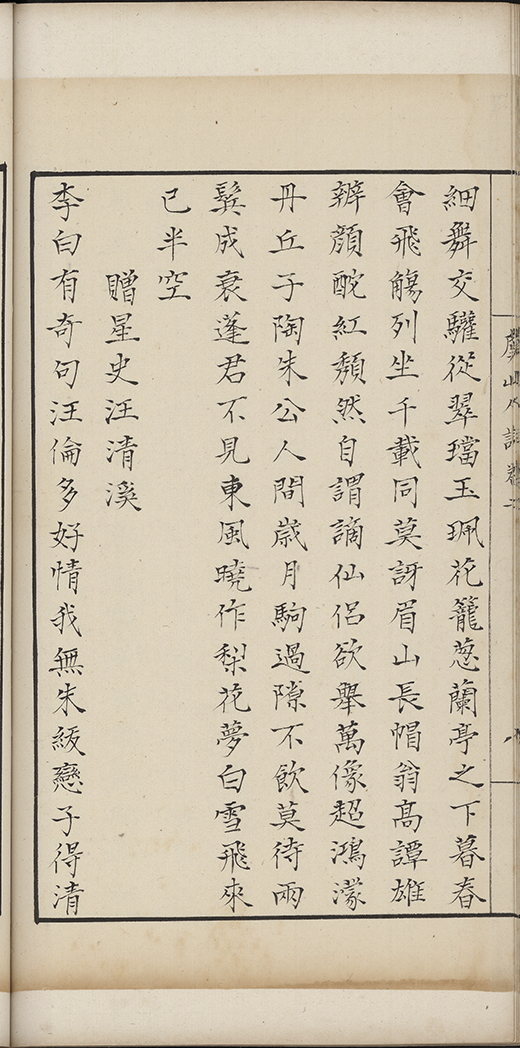 細舞交驩從翠璫玉珮花籠蔥蘭亭之下暮春
會飛觴列坐千載同莫訝眉山長帽翁高譚雄
辨顏酡紅頹然自謂謫仙侶欲舉萬像超鴻濛
丹丘子陶朱公人間歲月駒過隙不飲莫待兩
鬂成衰蓬君不見東風曉作梨花夢白雪飛來
已半空
贈星史汪清溪
李白有奇句汪倫多好情我無朱紱戀子得清